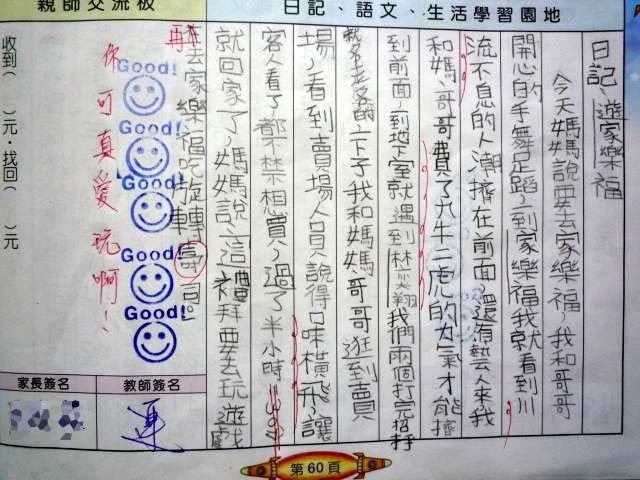 日記、語文、生活學習園地
親師交流板
日記 遊家樂福
今天媽媽說要去家樂福,我和哥哥
開心的手舞足蹈,到家樂福我就看到川
流不息的人潮擠在前面,還有藝人來我
和媽、哥哥費了九牛二虎的力氣才能擠
到前面,到地下室就遇到林炎翔我們兩個打完招呼
就各走各的,一下子我和媽媽、哥哥逛到賣
場,看到賣場人員說得口味橫飛,讓
客人看了,都不禁想買,過了半小時
就回家了,媽媽說:這禮拜要去玩遊戲
再去家樂福吃旋轉壽司。
Good!
Good!
Good!
Good!
Good!
你可真愛玩啊!
收到( )元,找回( )元
教師簽名
家長簽名
第60頁